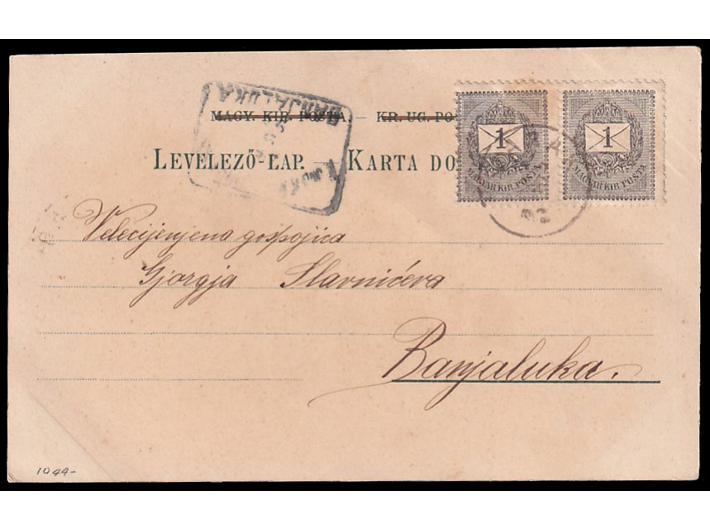 BANJALUKA
MAGY. KIR. POSTA. — KR. UG. PO
LEVELEZŐ-LAP. — KARTA DO
1 MAGYAR KIR. POSTA
1 MAGYAR KIR. POSTA
Velecijenjena gospojica
Gjorgja Slavnićeva
Banjaluka.
1044-